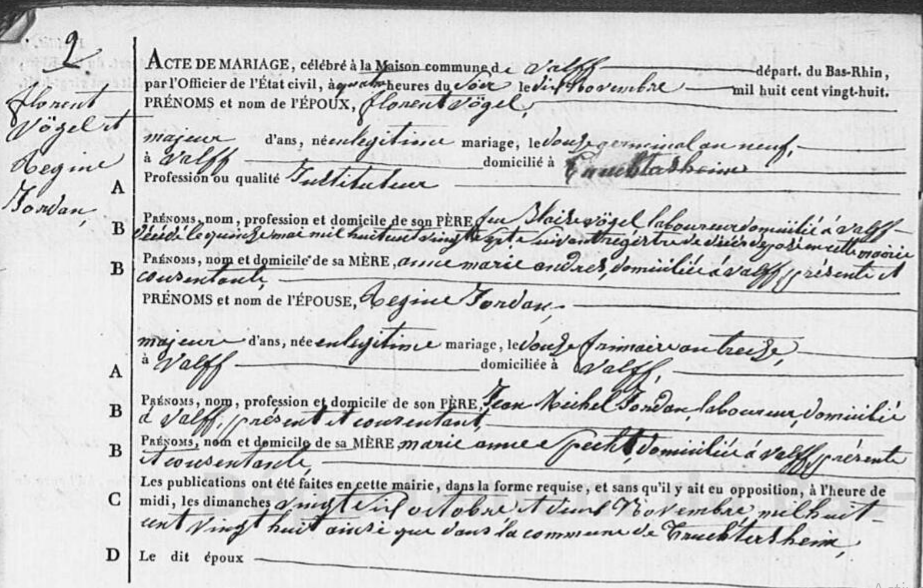 2
florent
Vögel et
Regine
Jordan,
ACTE DE MARIAGE, célébré à la Maison commune de Valff départ. du Bas-Rhin,
par l'Officier de l'État civil, à quatre heures du Soir le dix Novembre mil huit cent vingt-huit.
PRÉNOMS et nom de l'ÉPOUX, florent Vögel,
majeur d'ans, né en legitime mariage, le douze germinal an neuf,
à Valff domicilié à Truchtersheim
A Profession ou qualité Instituteur
B PRÉNOMS, nom, profession et domicile de son PÈRE feu Blaise Vögel, laboureur domicilié à Valff
décédé le quinze mai mil huit cent vingt sept suivant registre de décès déposé en cette mairie
B PRÉNOMS, nom et domicile de sa MÈRE, anne marie andres, domiciliée à Valff, présente et
consentante,
PRÉNOMS et nom de l'ÉPOUSE, Regine Jordan
majeure d'ans, née en legitime mariage, le douze frimaire an treize,
A à Valff domiciliée à Valff,
B PRÉNOMS, nom, profession et domicile de son PÈRE Jean Michel Jordan, laboureur, domicilié
à Valff, présent et consentant,
B PRÉNOMS, nom et domicile de sa MÈRE marie anne Specht, domiciliée à Valff, présente
et consentante,
Les publications ont été faites en cette mairie, dans la forme requise, et sans qu'il y ait eu opposition, à l'heure de
C midi, les dimanches vingt six octobre et deux Novembre mil huit
cent vingt huit ainsi que dans la commune de Truchtersheim,
D Le dit époux